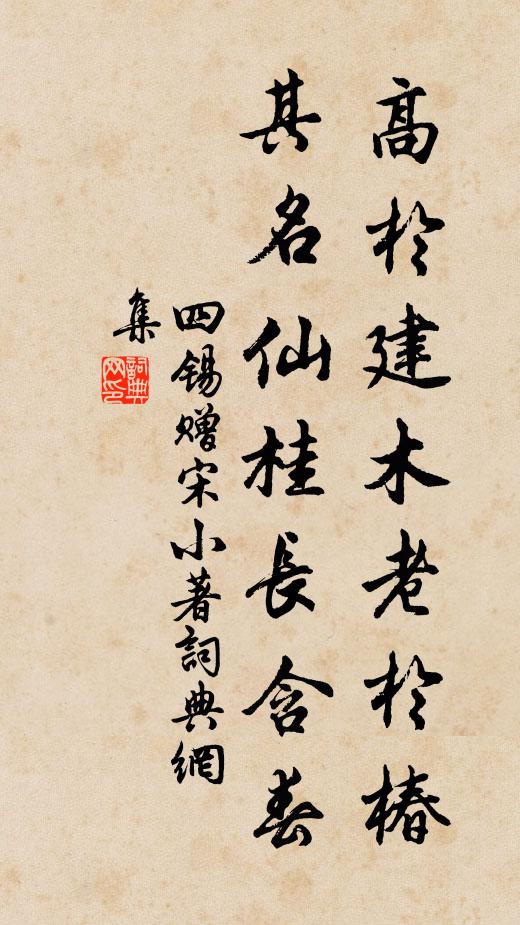 高於建木老於椿
其名仙桂長含春
四錫贈宋小著詞典網
集
詞典網印